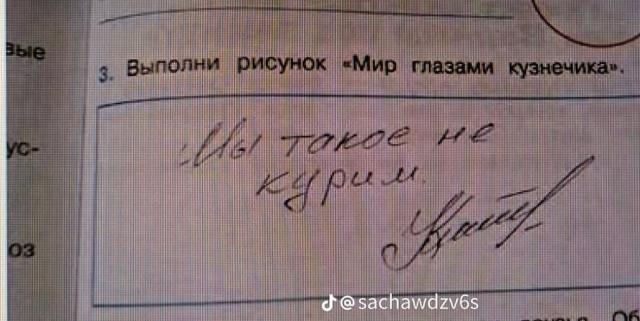 вые
3. Выполни рисунок «Мир глазами кузнечика».
ус-
Мы такое не
курим.
оз
@sachawdzv6s